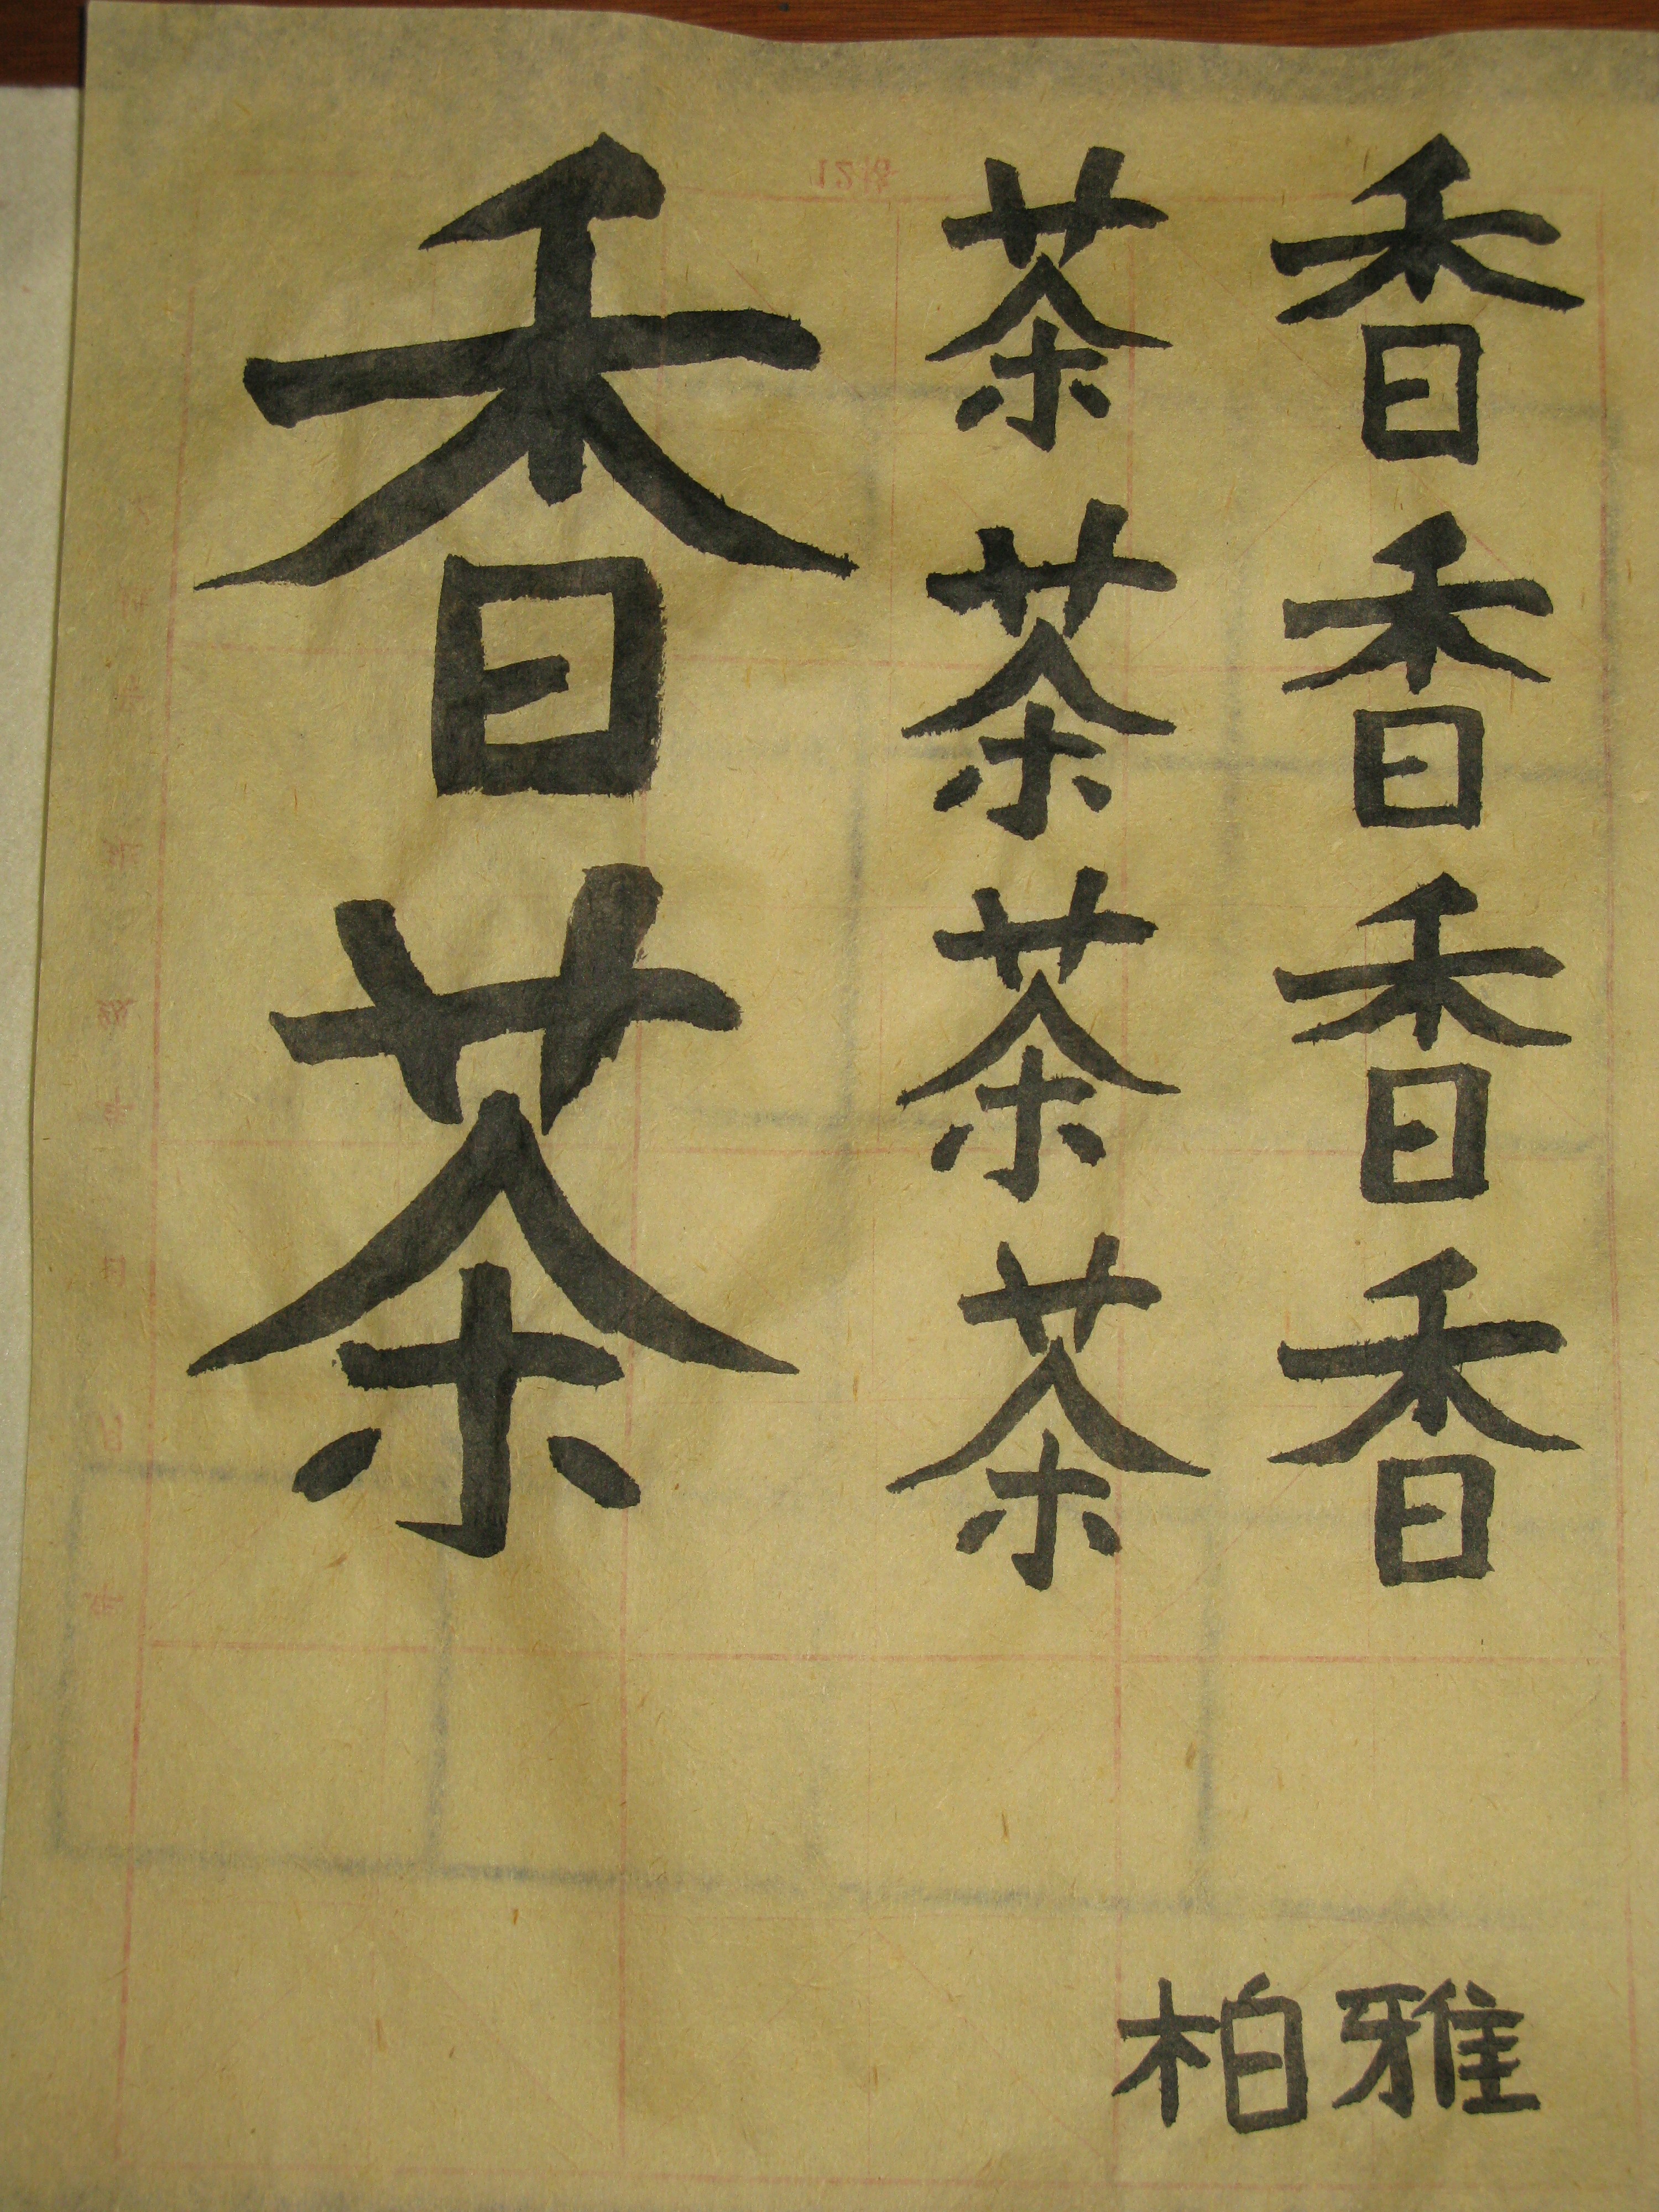 香香香香
茶茶茶茶
香茶
柏雅